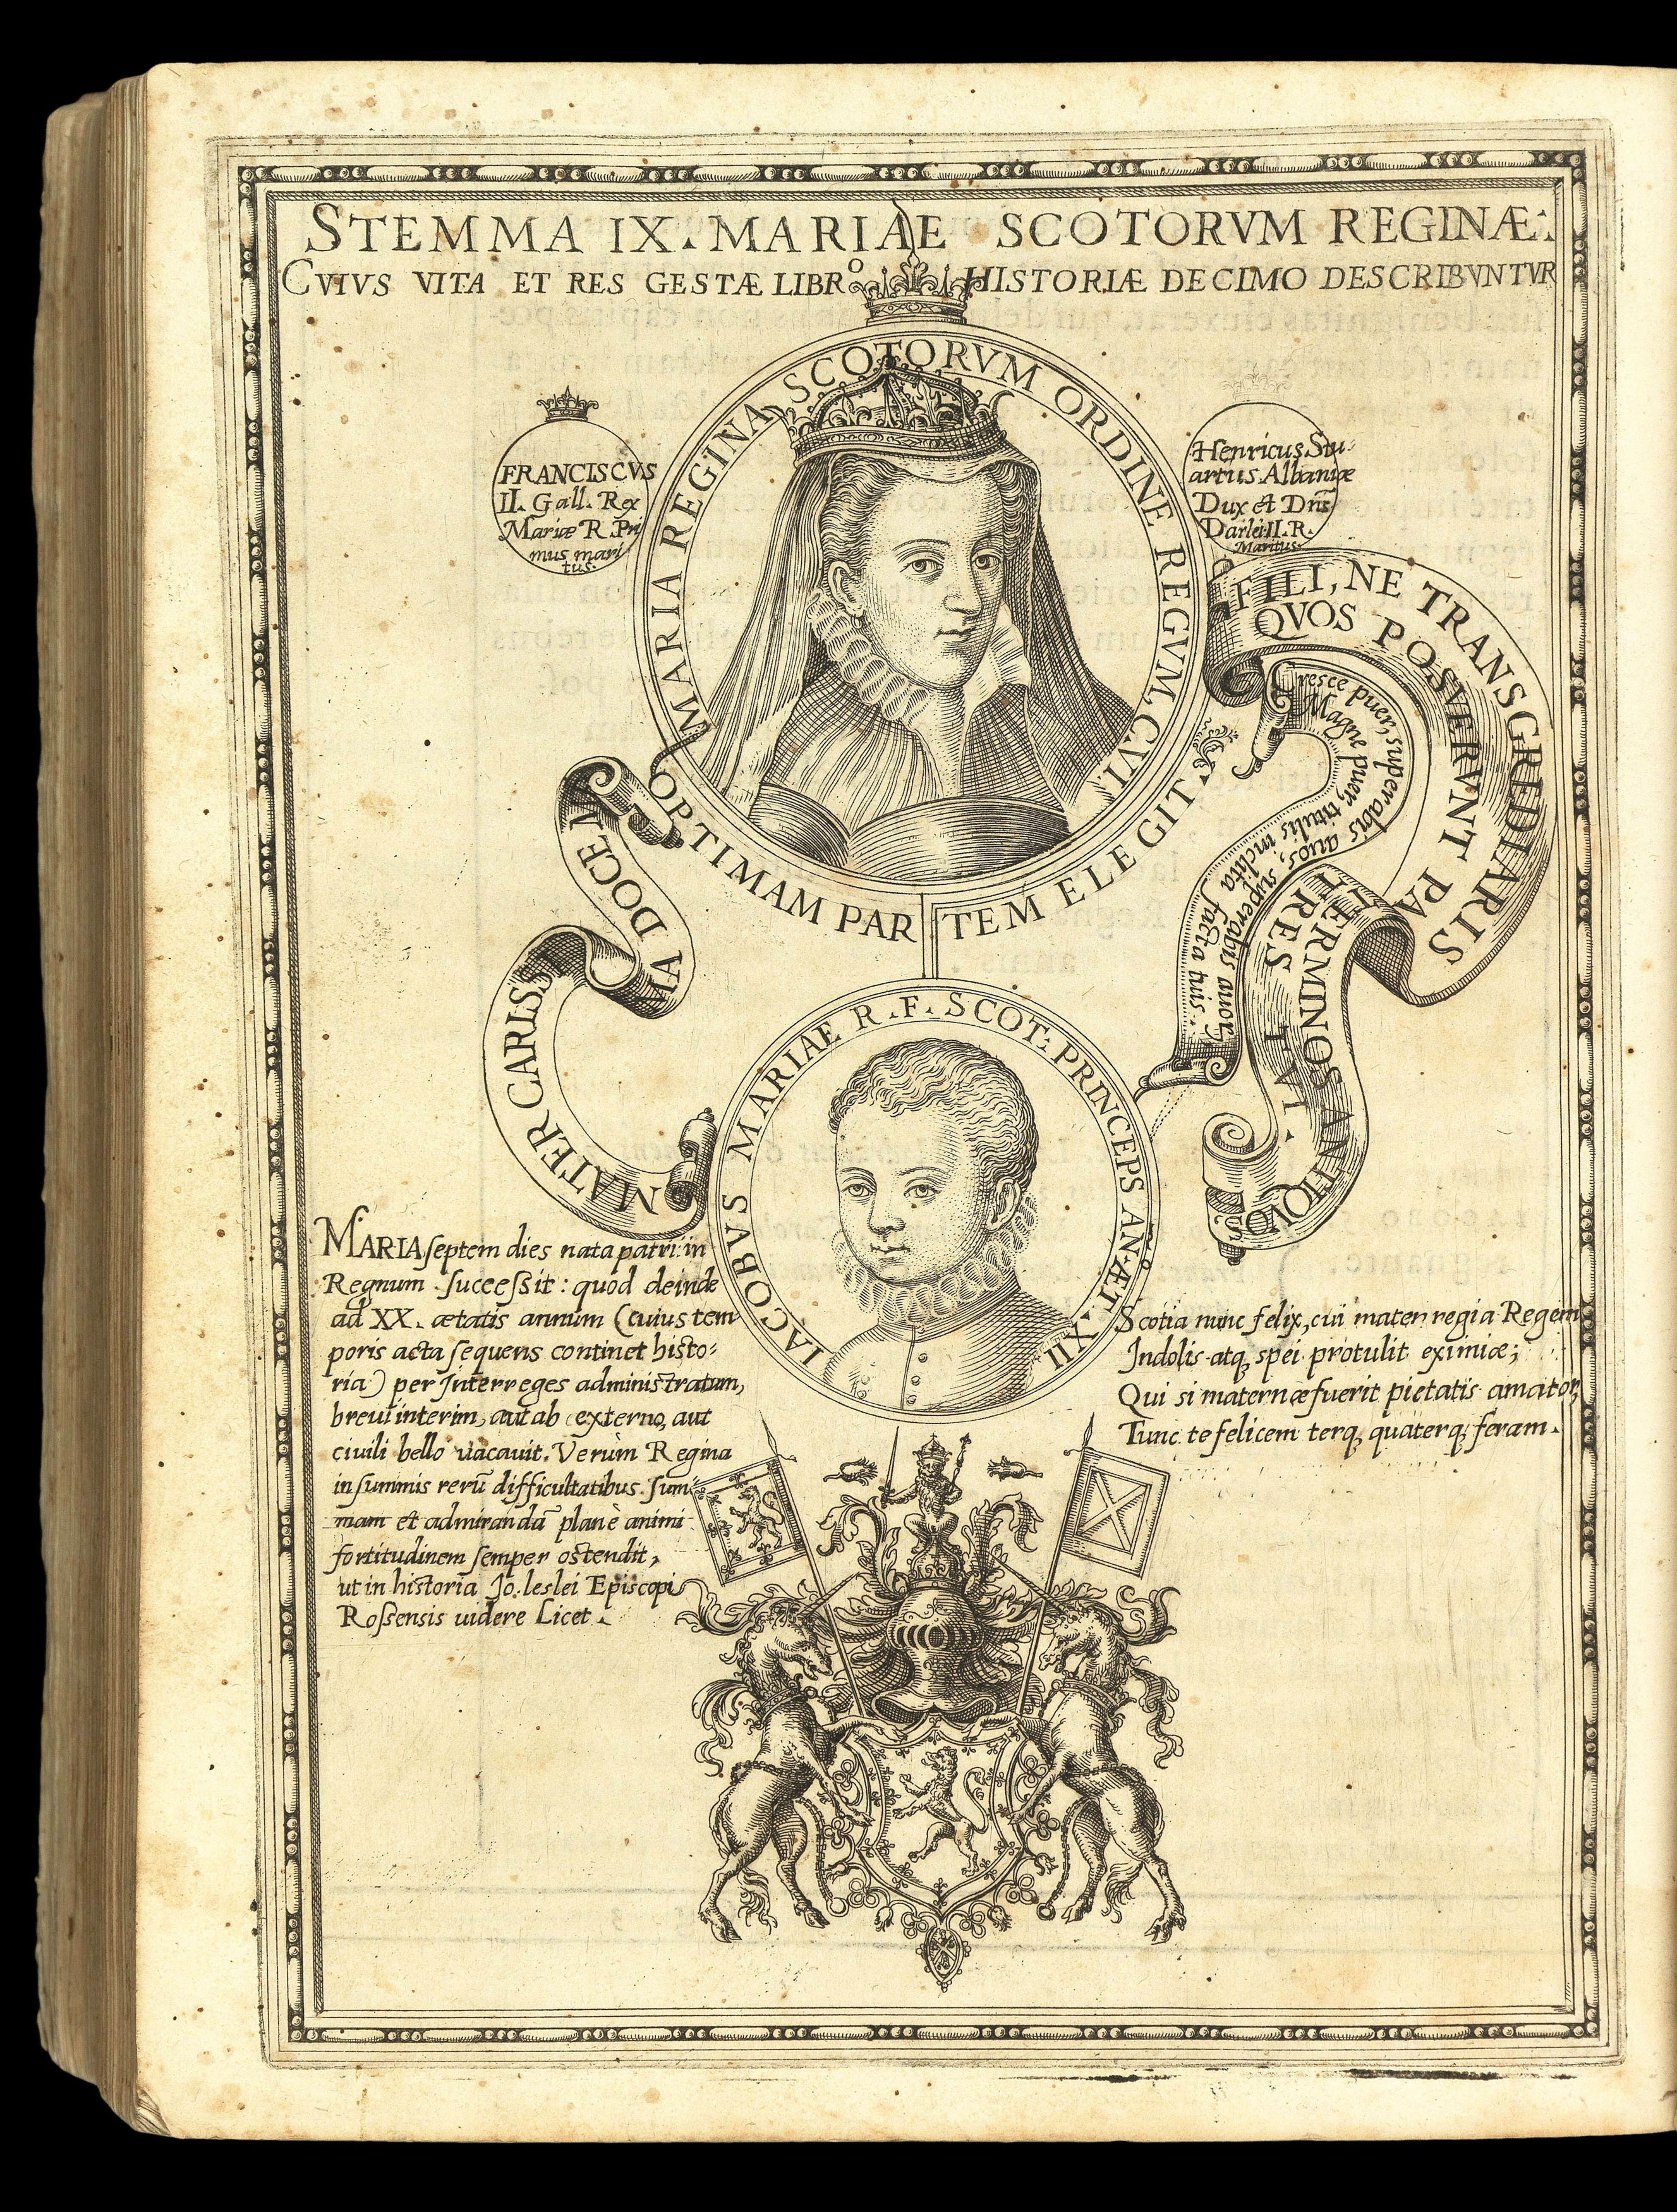 STEMMA IX. MARIAE SCOTORVM REGINÆ:
CVIVS VITA ET RES GESTÆ LIBRº HISTORIÆ DECIMO DESCRIBVNTVR
FRANCISCVS
II. Gall. Rex
Mariæ R. Pri
mus mari
tus.
MARIA REGINA SCOTORVM ORDINE REGVM, CVII
OPTIMAM PARTEM ELEGIT
Henricus Stu
artus Albaniæ
Dux et Dns̄
Darlei II. R.
Maritus.
FILI, NE TRANSGREDIARIS TERMINOS ANTIQVO
QVOS POSVERVNT PATRES TVI.
Cresce puer, superabis auos; superabis auor
Magne puer, titulis inclita facta tuis.
MATER CARISSIMA DOCEAM
IACOBVS MARIAE R. F. SCOT: PRINCEPS ANº. ÆT. XII
MARIA septem dies nata patri in
Regnum successit: quod deinde
ad XX. ætatis annum (cuius tem
poris acta sequens continet histo:
ria) per Interreges administratum,
breui interim, aut ab externo, aut
ciuili bello uacauit. Verùm Regina
in summis rerū difficultatibus sum
mam et admirandā planè animi
fortitudinem semper ostendit,
ut in historia Jo. leslei Episcopi
Rossensis uidere Licet.
Scotia nunc felix, cui mater regia Regem
Indolis atq, spei protulit eximiæ;
Qui si maternæ fuerit pietatis amator,
Tunc te felicem terq, quaterq, feram.